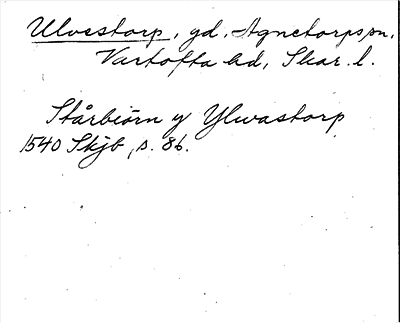 Ulvestorp, gd. Agnetorps sn,
Vartofta hd, Skar. l.
Stårbiörn y Ylwastorp
1540 Skjb, s. 86.